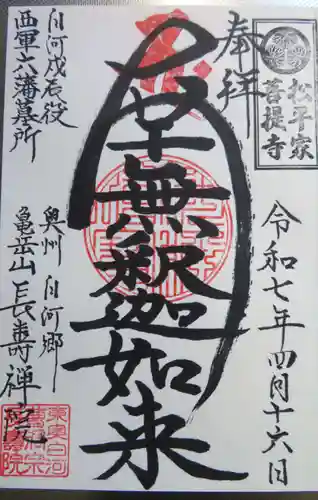 奉拝
松平家
菩提寺
令和七年四月十六日
南無釈迦如来
白河戊辰役
西軍六藩墓所
奥州 白河郷
亀岳山 長壽禅院